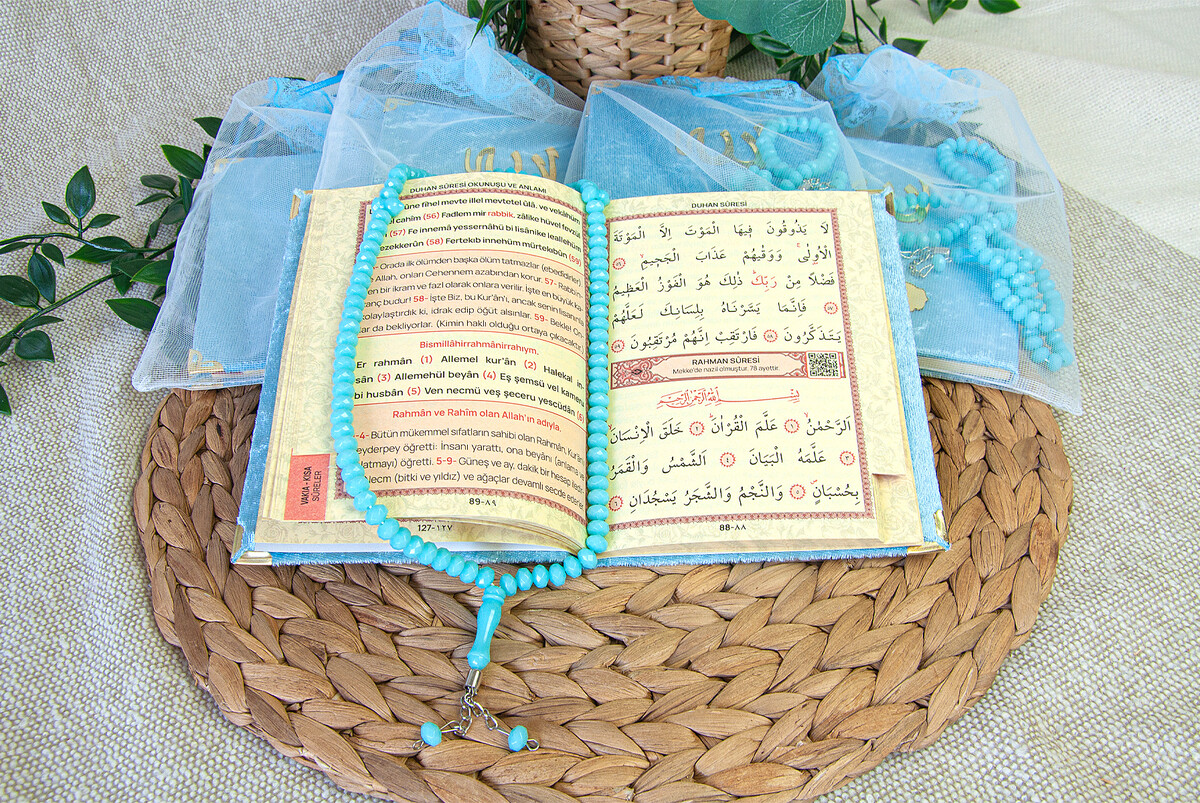 DUHAN SÛRESİ OKUNUŞU VE ANLAMI
ûne fîhel mevte illel mevtetel ûlâ. ve vekâhüm
cahîm (56) Fadlem mir rabbik. zâlike hüvel fevzül
(57) Fe innemâ yessernâhü bi lisânike leallehüm
ezekkerûn (58) Fertekıb innehüm mürtekıbûn (59)
- Orada ilk ölümden başka ölüm tatmazlar (ebedîdirler)
Allah, onları Cehennem azabından korur. 57- Rabbin-
en bir ikram ve fazl olarak onlara verilir. İşte en büyük ka-
anç budur! 58- İşte Biz, bu Kur'ân'ı, ancak senin lisanınla
kolaylaştırdık ki, idrak edip öğüt alsınlar. 59- Bekle! On-
lar da bekliyorlar. (Kimin haklı olduğu ortaya çıkacaktır.)
Bismillâhirrahmânirrahıym.
Er rahmân (1) Allemel kur'ân (2) Halekal in-
sân (3) Allemehül beyân (4) Eş şemsü vel kameru
bi husbân (5) Ven necmü veş şeceru yescüdân (6)
Rahmân ve Rahîm olan Allah'ın adıyla.
-4- Bütün mükemmel sıfatların sahibi olan Rahmân, Kur'ân'ı
peyderpey öğretti: İnsanı yarattı, ona beyânı (anlama ve
latmayı) öğretti. 5-9- Güneş ve ay, dakik bir hesap iledir.
Necm (bitki ve yıldız) ve ağaçlar devamlı secde ederler.
VAKIA - KISA
SÛRELER
89-٨٩
127-١٢٧
DUHAN SÛRESİ
لَا يَذُوقُونَ فِيهَا الْمَوْتَ اِلَّا الْمَوْتَةَ
الْاُولٰىۚ وَوَقٰيهُمْ عَذَابَ الْجَحِيمِۙ ﴿٥٦﴾
فَضْلًا مِنْ رَبِّكَۜ ذٰلِكَ هُوَ الْفَوْزُ الْعَظِيمُ
﴿٥٧﴾ فَاِنَّمَا يَسَّرْنَاهُ بِلِسَانِكَ لَعَلَّهُمْ
يَتَذَكَّرُونَ ﴿٥٨﴾ فَارْتَقِبْ اِنَّهُمْ مُرْتَقِبُونَ ﴿٥٩﴾
RAHMAN SÛRESİ
Mekke'de nazil olmuştur. 78 ayettir.
بِسْمِ اللّٰهِ الرَّحْمٰنِ الرَّحِيمِ
اَلرَّحْمٰنُۙ ﴿١﴾ عَلَّمَ الْقُرْاٰنَۜ ﴿٢﴾ خَلَقَ الْاِنْسَانَۙ
﴿٣﴾ عَلَّمَهُ الْبَيَانَ ﴿٤﴾ اَلشَّمْسُ وَالْقَمَرُ
بِحُسْبَانٍۖ ﴿٥﴾ وَالنَّجْمُ وَالشَّجَرُ يَسْجُدَانِ ﴿٦﴾
88-٨٨